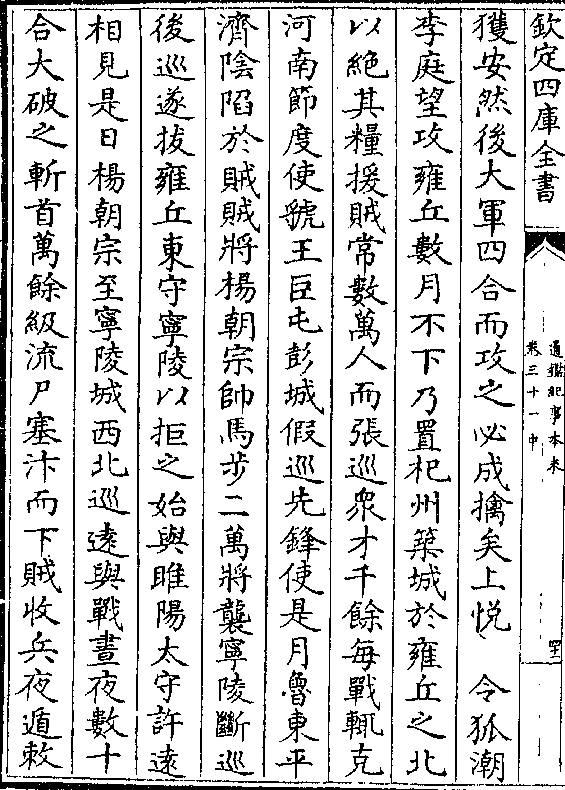 欽定四庫全書
通鑑紀事本末
卷三十一中
獲安然後大軍四合而攻之必成擒矣上悦　令狐潮
李庭望攻雍丘數月不下乃置杞州築城於雍丘之北
以絶其糧援賊常數萬人而張巡衆才千餘每戰輒克
河南節度使虢王巨屯彭城假巡先鋒使是月魯東平
濟陰陷於賊賊將楊朝宗帥馬步二萬將襲寧陵斷巡
後巡遂拔雍丘東守寧陵以拒之始與睢陽太守許遠
相見是日楊朝宗至寧陵城西北巡遠與戰晝夜數十
合大破之斬首萬餘級流尸塞汴而下賊收兵夜遁敕